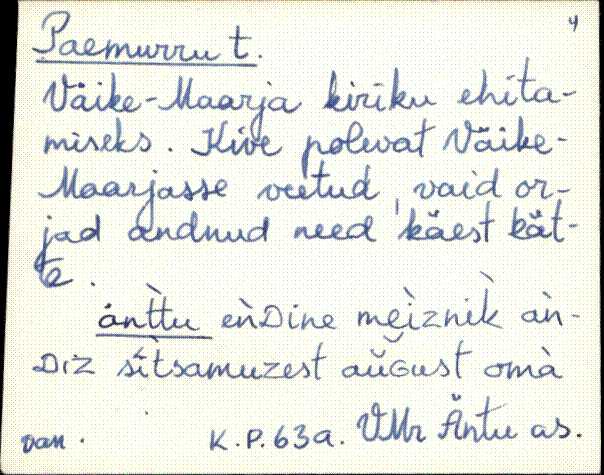 4
Paemurru t.
Väike-Maarja kiriku ehita-
miseks. Kive polevat Väike-
Maarjasse veetud, vaid or-
jad andnud need käest kät-
te.
ànt̀tu eǹDine meìzniK̀ aǹ-
Diz sìtsamuzest aŭGust omà
van. K.P. 63a. VMr Äntu as.